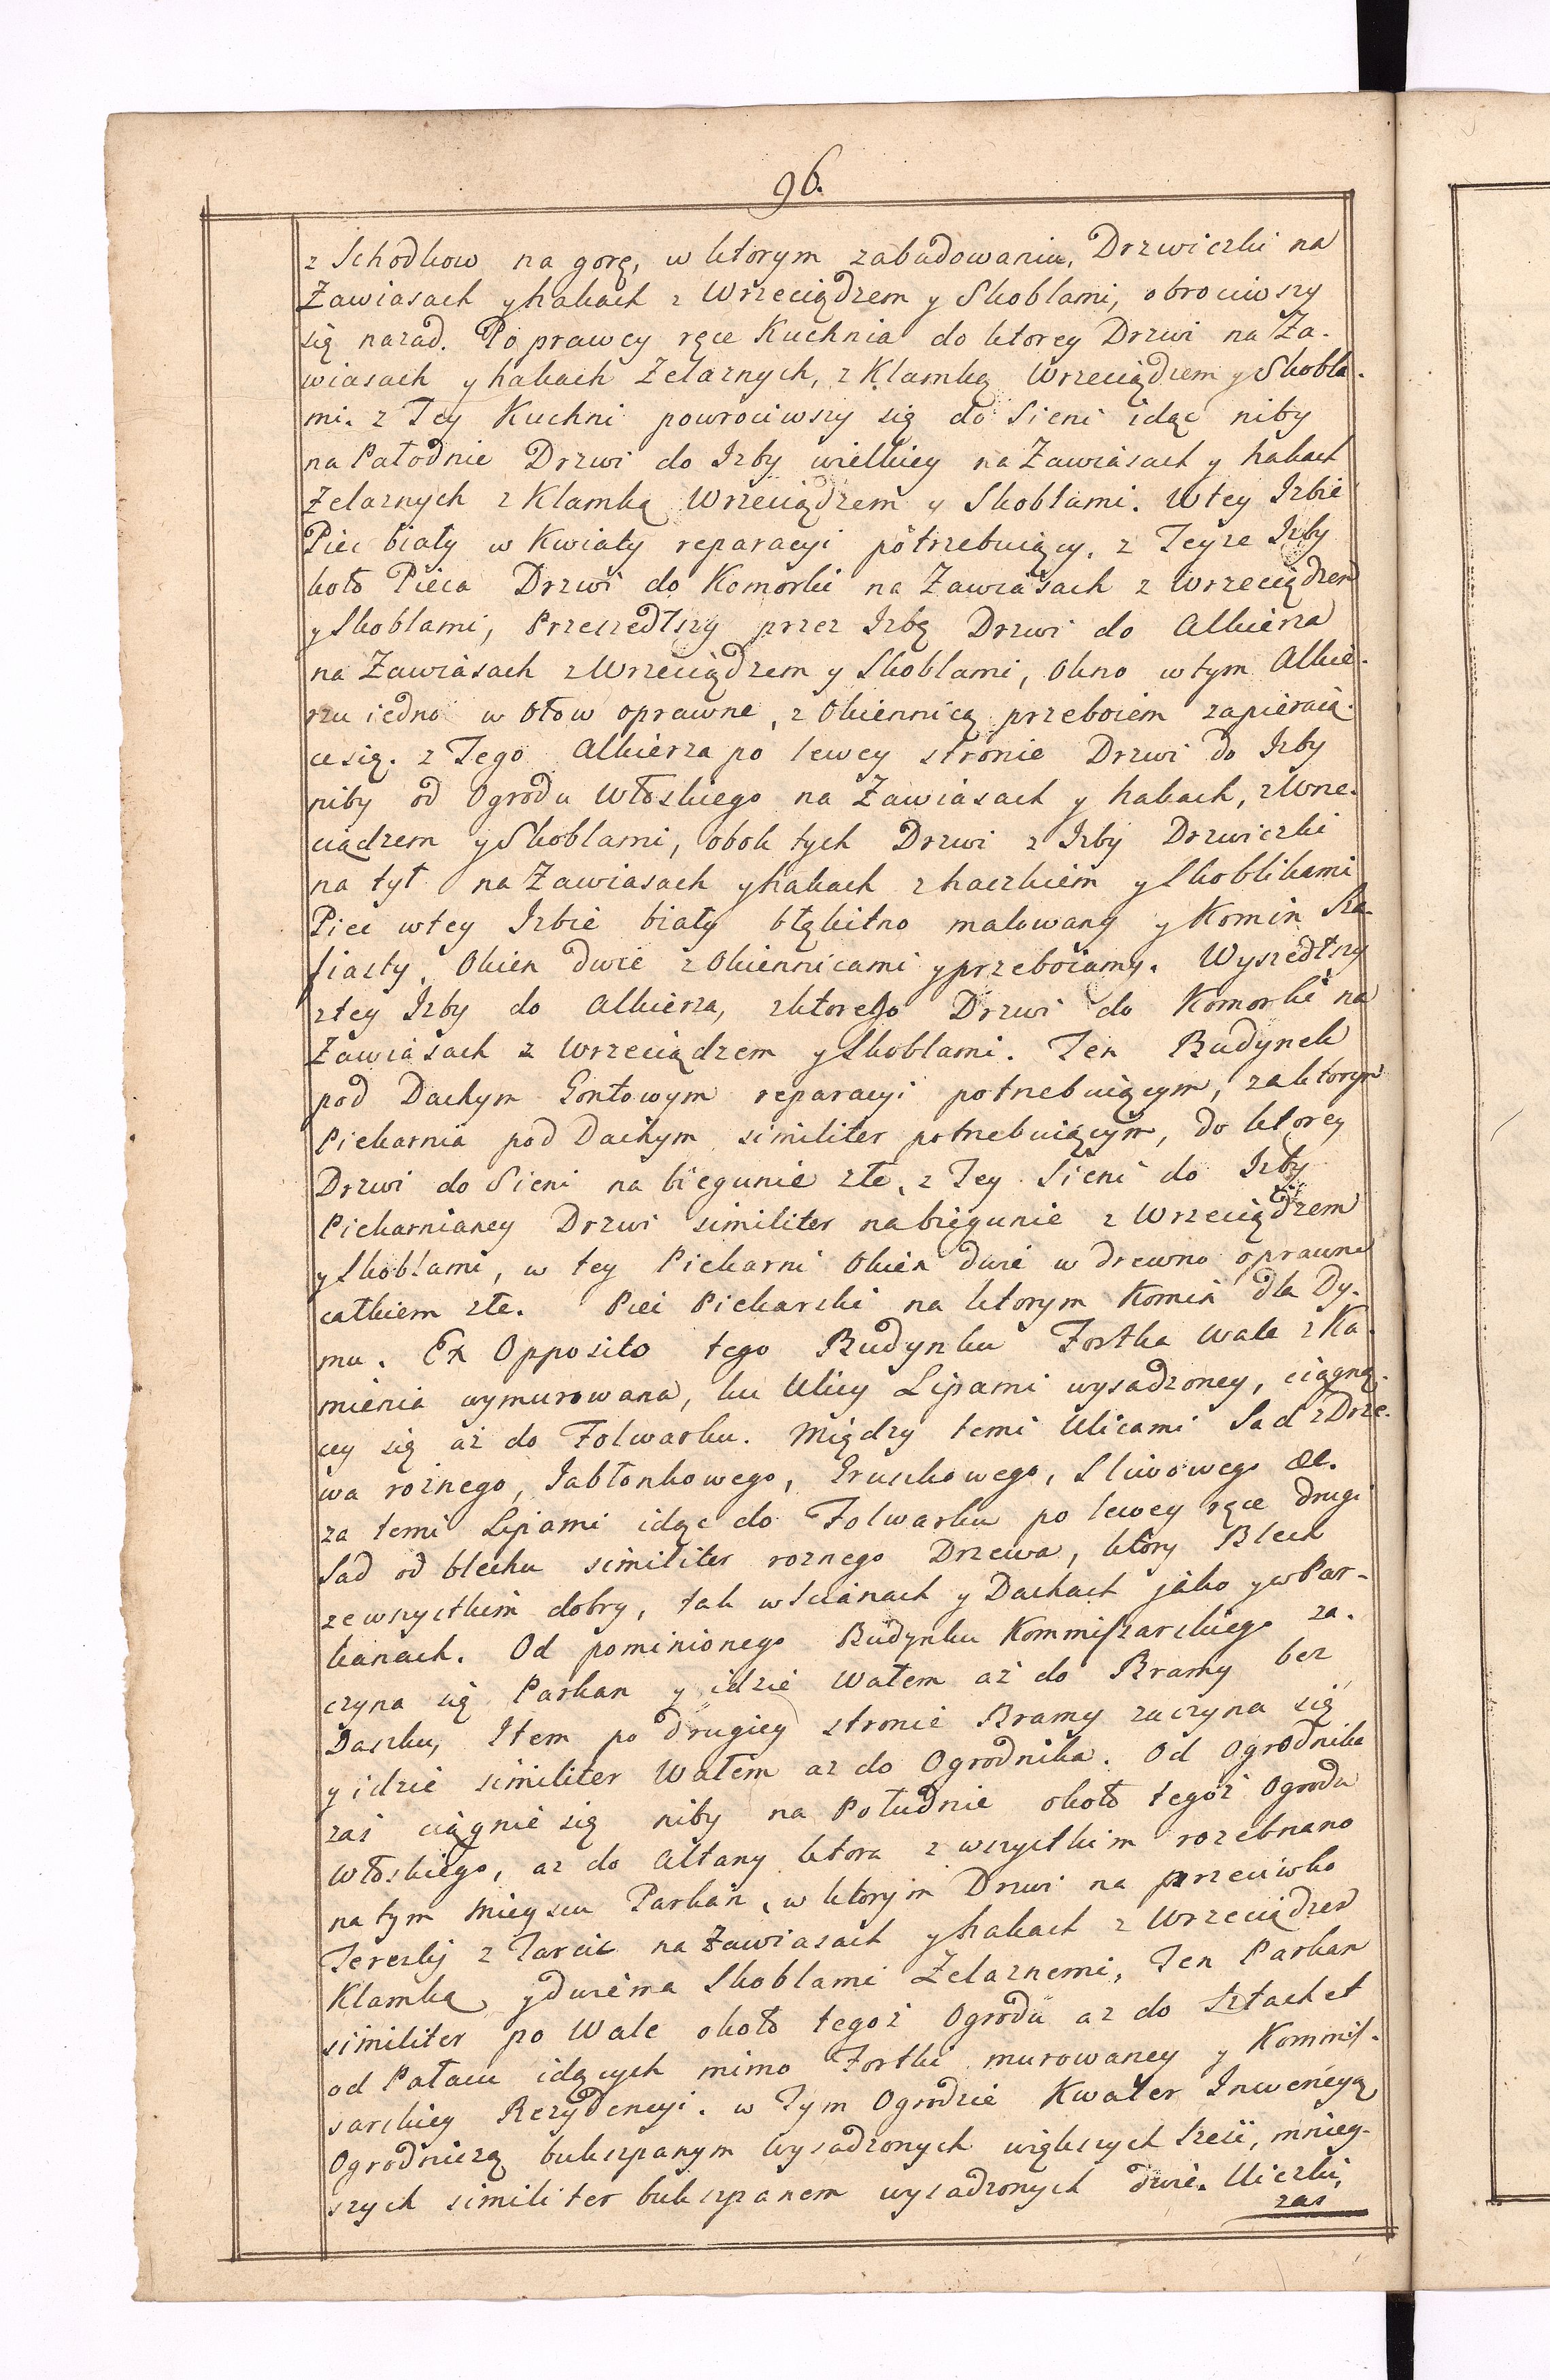 96.
z Schodkow na gorę, w ktorym zabudowaniu, Drzwiczki na
Zawiasach y hakach z Wrzeciądzem y Skoblami, obrociwszy
się nazad. Po prawey ręce Kuchnia do ktorey Drzwi na Za-
wiasach y hakach Zelaznych, z Klamką Wrzeciądzem y Skobla-
mi. z Tey Kuchni powrociwszy się do Sieni idąc niby
na Południe Drzwi do Izby wielkiey na Zawiasach y hakach
Zelaznych z Klamką Wrzeciądzem y Skoblami. W tey Izbie
Piec biały w Kwiaty reparacyi potrzebuiący. z Teyze Izby
koło Pieca Drzwi do Komorki na Zawiasach z Wrzeciądzem
y Skoblami, Przeszedłszy przez Izbę Drzwi do Alkierza
na Zawiasach z Wrzeciądzem y Skoblami, Okno w tym Alkie-
rzu iedno w Ołow oprawne, z Okiennicą przeboiem zapieraią-
ce się. z Tego Alkierza po lewey stronie Drzwi do Izby
niby od Ogrodu Włoskiego na Zawiasach y hakach, z Wrze-
ciądzem y Skoblami, obok tych Drzwi z Izby Drzwiczki
na tył na Zawiasach y hakach z haczkiem y Skoblikami
Piec w tey Izbie biały błękitno malowany y Komin Sza-
fiasty. Okien dwie z Okiennicami y przeboiamy. Wyszedłszy
z tey Izby do Alkierza, z ktorego Drzwi do Komorki na
Zawiasach z Wrzeciądzem y Skoblami. Ten Budynek
pod Dachym Gontowym reparacyi potrzebuiącym, za ktorym
Piekarnia pod Dachym similiter potrzebuiącym, do ktorey
Drzwi do Sieni na biegunie złe, z Tey Sieni do Izby
Piekarnianey Drzwi similiter na biegunie z Wrzeciądzem
y Skoblami, w tey Piekarni Okien dwie w drewno oprawne
całkiem złe. Piec Piekarski na ktorym Komin dla Dy-
mu. Ex Opposito tego Budynku Fortka wale z Ka-
mienia wymurowana, ku Ulicy Lipami wysadzoney, ciągną-
cey się aż do Folwarku. Między temi Ulicami Sad z Drze-
wa rożnego, Jabłonkowego, Gruszkowego, Sliwowego &c.
za temi Lipami idąc do Folwarku po lewey ręce drugi
Sad od blechu similiter roznego Drzewa, ktory Blech
ze wszystkim dobry, tak w Scianach y Dachach jako y w Par-
kanach. Od pominionego Budynku Kommissarskiego za-
czyna się Parkan y idzie Wałem aż do Bramy bez
Daszku, Item po drugiey stronie Bramy zaczyna się
y idzie similiter Wałem az do Ogrodnika. Od Ogrodnika
zaś ciągnie się niby na Południe około tegoż Ogrodu
Włoskiego, az do Altany ktora z wszystkim rozebrano
na tym mieyscu Parkan, w ktorym Drzwi na przeciwko
Tereski z Tarcic na Zawiasach y hakach z Wrzeciądzem
Klamką y dwiema Skoblami Zelaznemi, Ten Parkan
similiter po Wale około tegoż Ogrodu az do Sztachet
od Pałacu idących mimo Fortki murowaney y Kommis-
sarskiey Rezydencyi. w Tym Ogrodzie Kwater Inwencyą
Ogrodniczą bukszpanym wysadzonych większych Sześć, mniey-
szych similiter bukszpanem wysadzonych dwie. Uliczki
zas